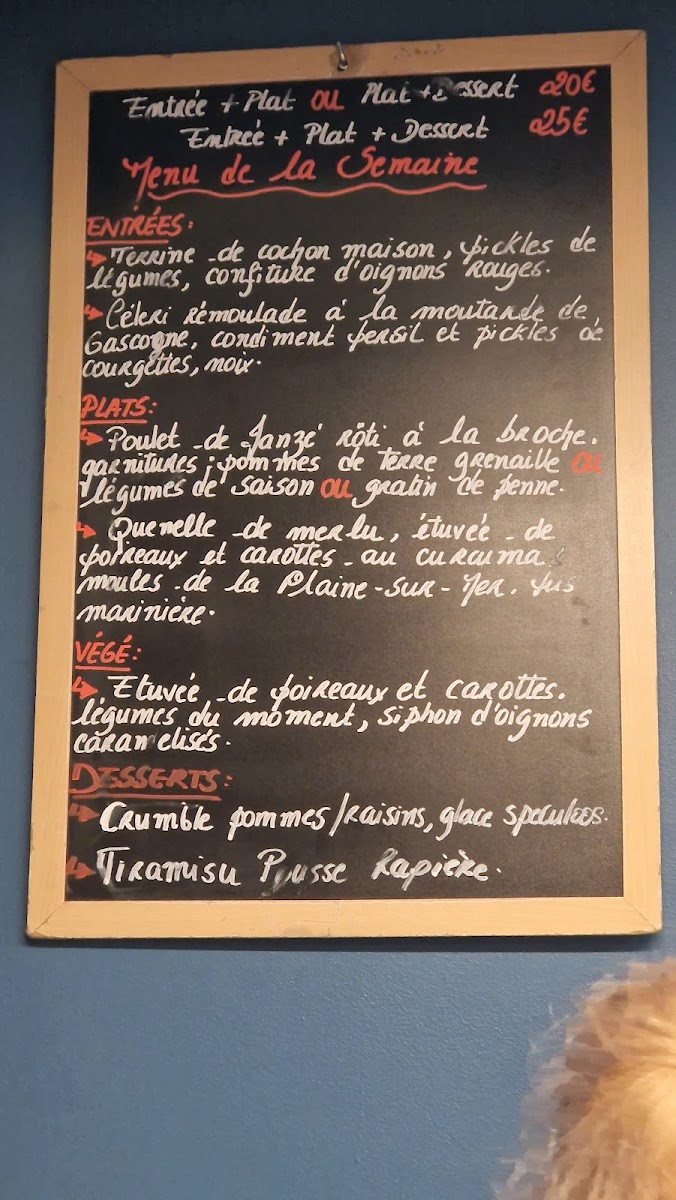 Entrée + Plat OU Plat + Dessert 20€
Entrée + Plat + Dessert 25€
Menu de la Semaine
ENTRÉES:
↳ Terrine de cochon maison, pickles de
légumes, confiture d'oignons rouges.
↳ Céleri rémoulade à la moutarde de
Gascogne, condiment persil et pickles de
courgettes, noix.
PLATS:
↳ Poulet de Janzé rôti à la broche.
garnitures: pommes de terre grenaille OU
légumes de saison OU gratin de penne.
↳ Quenelle de merlu, étuvée de
poireaux et carottes au curcuma
moules de la Plaine-sur-Mer. jus
marinière.
VÉGÉ:
↳ Etuvée de poireaux et carottes.
légumes du moment, siphon d'oignons
caramelisés.
DESSERTS:
↳ Crumble pommes/raisins, glace speculoos.
↳ Tiramisu Pousse Rapière.